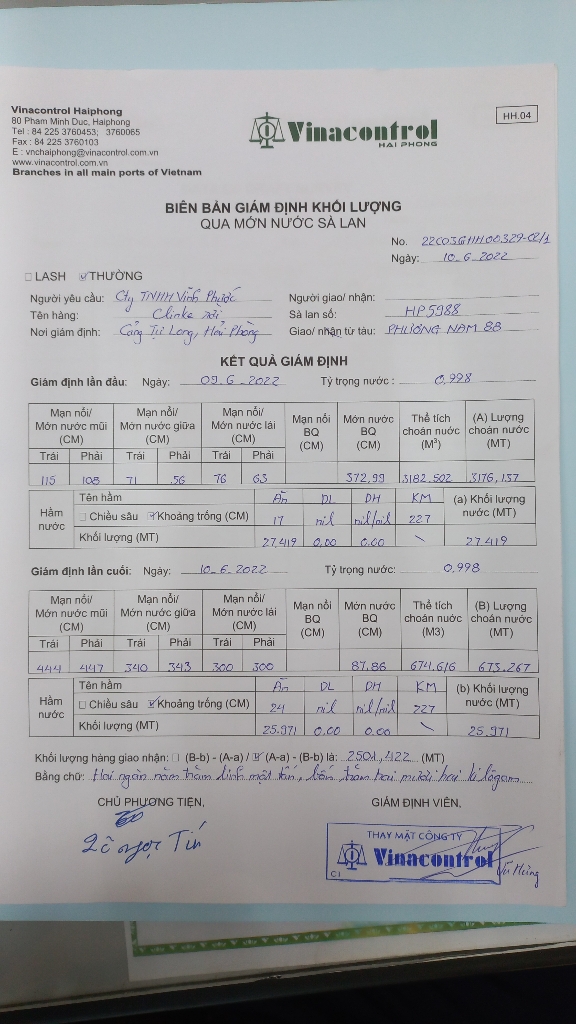 Vinacontrol Haiphong
80 Pham Minh Duc, Haiphong
Tel : 84 225 3760453; 3760065
Fax : 84 225 3760103
E : vnchaiphong@vinacontrol.com.vn
www.vinacontrol.com.vn
Branches in all main ports of Vietnam
Vinacontrol
HAI PHONG
HH.04
BIÊN BẢN GIÁM ĐỊNH KHỐI LƯỢNG
QUA MỚN NƯỚC SÀ LAN
No. 22C03GHH00329-02/1
Ngày: 10.6.2022
LASH THƯỜNG
Người yêu cầu: Cty TNHH Vĩnh Phước Người giao/ nhận:
Tên hàng: Clinke rời Sà lan số: HP5988
Nơi giám định: Cảng Tự Long, Hải Phòng Giao/ nhận từ tàu: PHƯƠNG NAM 88
KẾT QUẢ GIÁM ĐỊNH
Giám định lần đầu: Ngày: 09.6.2022 Tỷ trọng nước : 0,998
Mạn nổi/ Mớn nước mũi (CM) Mạn nổi/ Mớn nước giữa (CM) Mạn nổi/ Mớn nước lái (CM) Mạn nổi BQ (CM) Mớn nước BQ (CM) Thể tích choán nước (M³) (A) Lượng choán nước (MT)
Trái Phải Trái Phải Trái Phải
115 108 71 56 76 63 372,99 3182.502 3176,137
Hầm nước Tên hầm ĀĪ DL DH KM (a) Khối lượng nước (MT)
Chiều sâu Khoảng trống (CM) 17 nil nil/nil 227
Khối lượng (MT) 27,419 0,00 0.00 \ 27.419
Giám định lần cuối: Ngày: 10.6.2022 Tỷ trọng nước: 0,998
Mạn nổi/ Mớn nước mũi (CM) Mạn nổi/ Mớn nước giữa (CM) Mạn nổi/ Mớn nước lái (CM) Mạn nổi BQ (CM) Mớn nước BQ (CM) Thể tích choán nước (M3) (B) Lượng choán nước (MT)
Trái Phải Trái Phải Trái Phải
444 447 340 343 300 300 87.86 674.616 673.267
Hầm nước Tên hầm DL DH KM (b) Khối lượng nước (MT)
Chiều sâu Khoảng trống (CM) 24 nil nil/nil 227
Khối lượng (MT) 25.971 0.00 0.00 \ 25.971
Khối lượng hàng giao nhận: (B-b) - (A-a) / (A-a) - (B-b) là: 2501,422 (MT)
Bằng chữ: Hai ngàn năm trăm linh một tấn, bốn trăm hai mươi hai kilôgam
CHỦ PHƯƠNG TIỆN, GIÁM ĐỊNH VIÊN,
THAY MẶT CÔNG TY
Vinacontrol
C1
Vũ Hùng